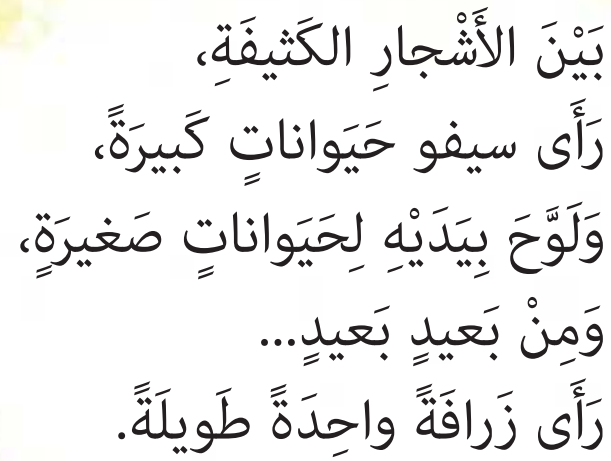 بَيْنَ الأَشْجارِ الكَثيفَةِ،
رَأَى سيفو حَيَواناتٍ كَبيرَةً،
وَلَوَّحَ بِيَدَيْهِ لِحَيَواناتٍ صَغيرَةٍ،
وَمِنْ بَعيدٍ بَعيدٍ...
رَأَى زَرافَةً واحِدَةً طَويلَةً.